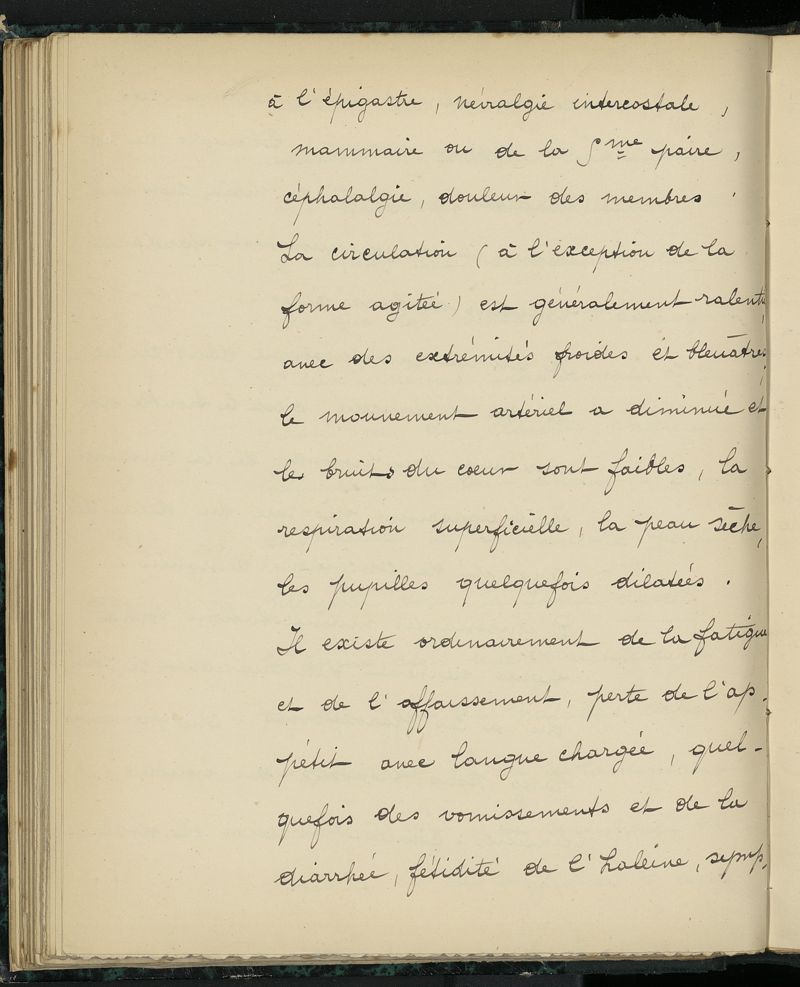 à l'épigastre, névralgie intercostale,
mammaire ou de la 5me paire,
céphalalgie, douleur des membres.
La circulation (à l'éxception de la
forme agitée) est généralement ralentie,
avec des extrémités froides et bleuâtres;
le mouvement artériel a diminué et
les bruits du coeur sont faibles, la
respiration superficielle, la peau sèche,
les pupilles quelquefois dilatées.
Il existe ordinairement de la fatigue
et de l'affaissement, perte de l'ap-
pétit avec langue chargée, quel-
quefois des vomissements et de la
diarrhée, fétidité de l'haleine, symp-